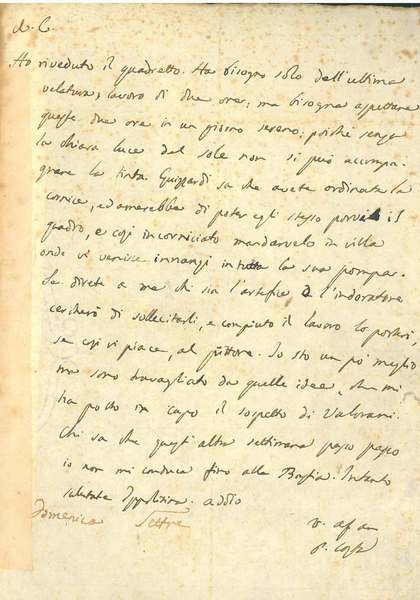 A. C.
Ho riveduto il quadretto. Ha bisogno solo dell'ultima
velatura, lavoro di due ore; ma bisogna aspettare
queste due ore in un giorno sereno; poichè senza
la chiara luce del sole non si può accompa-
gnare la tinta. Guizzardi sa che avete ordinata la
cornice, ed amerebbe di poter egli stesso porvi il
quadro, e così incorniciato mandarvelo in villa
onde vi venisse innanzi in tutta la sua pompa.
Se direte a me chi sia l'artefice e l'indoratore
cercherò di sollecitarli, e compiuto il lavoro lo porterò,
se così vi piace, al pittore. Io sto un pò meglio
ma sono travagliato da quelle idee, che mi
ha posto in capo il sospetto di Valorani.
Chi sa che quest'altra settimana passo passo
io non mi conduca fino alla Intanto
salutate Ippolitina. addio
Domenica Settre
v. aff
P. Costa